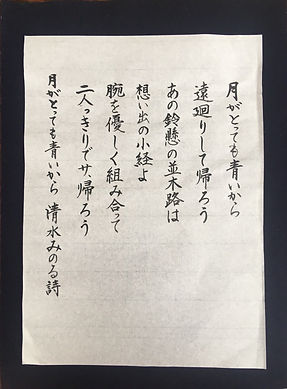 月がとっても青いから
遠廻りして帰ろう
あの鈴懸の並木路は
想い出の小径よ
腕を優しく組み合って
二人っきりでサ、帰ろう
月がとっても青いから 清水みのる詩